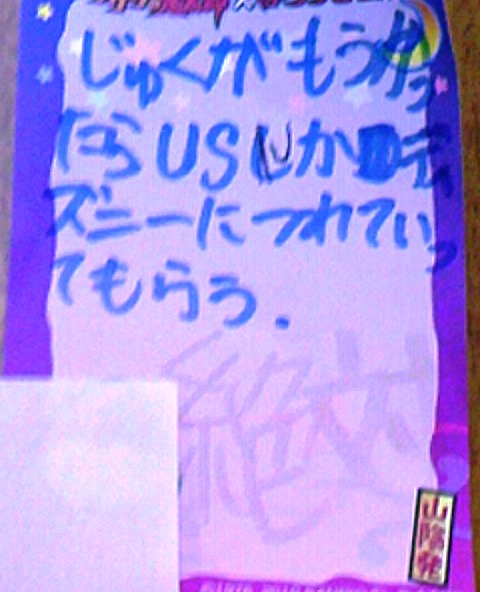 じゅくがもうかっ
たらUSJかディ
ズニーにつれていっ
てもらう.
絶対
山陰発